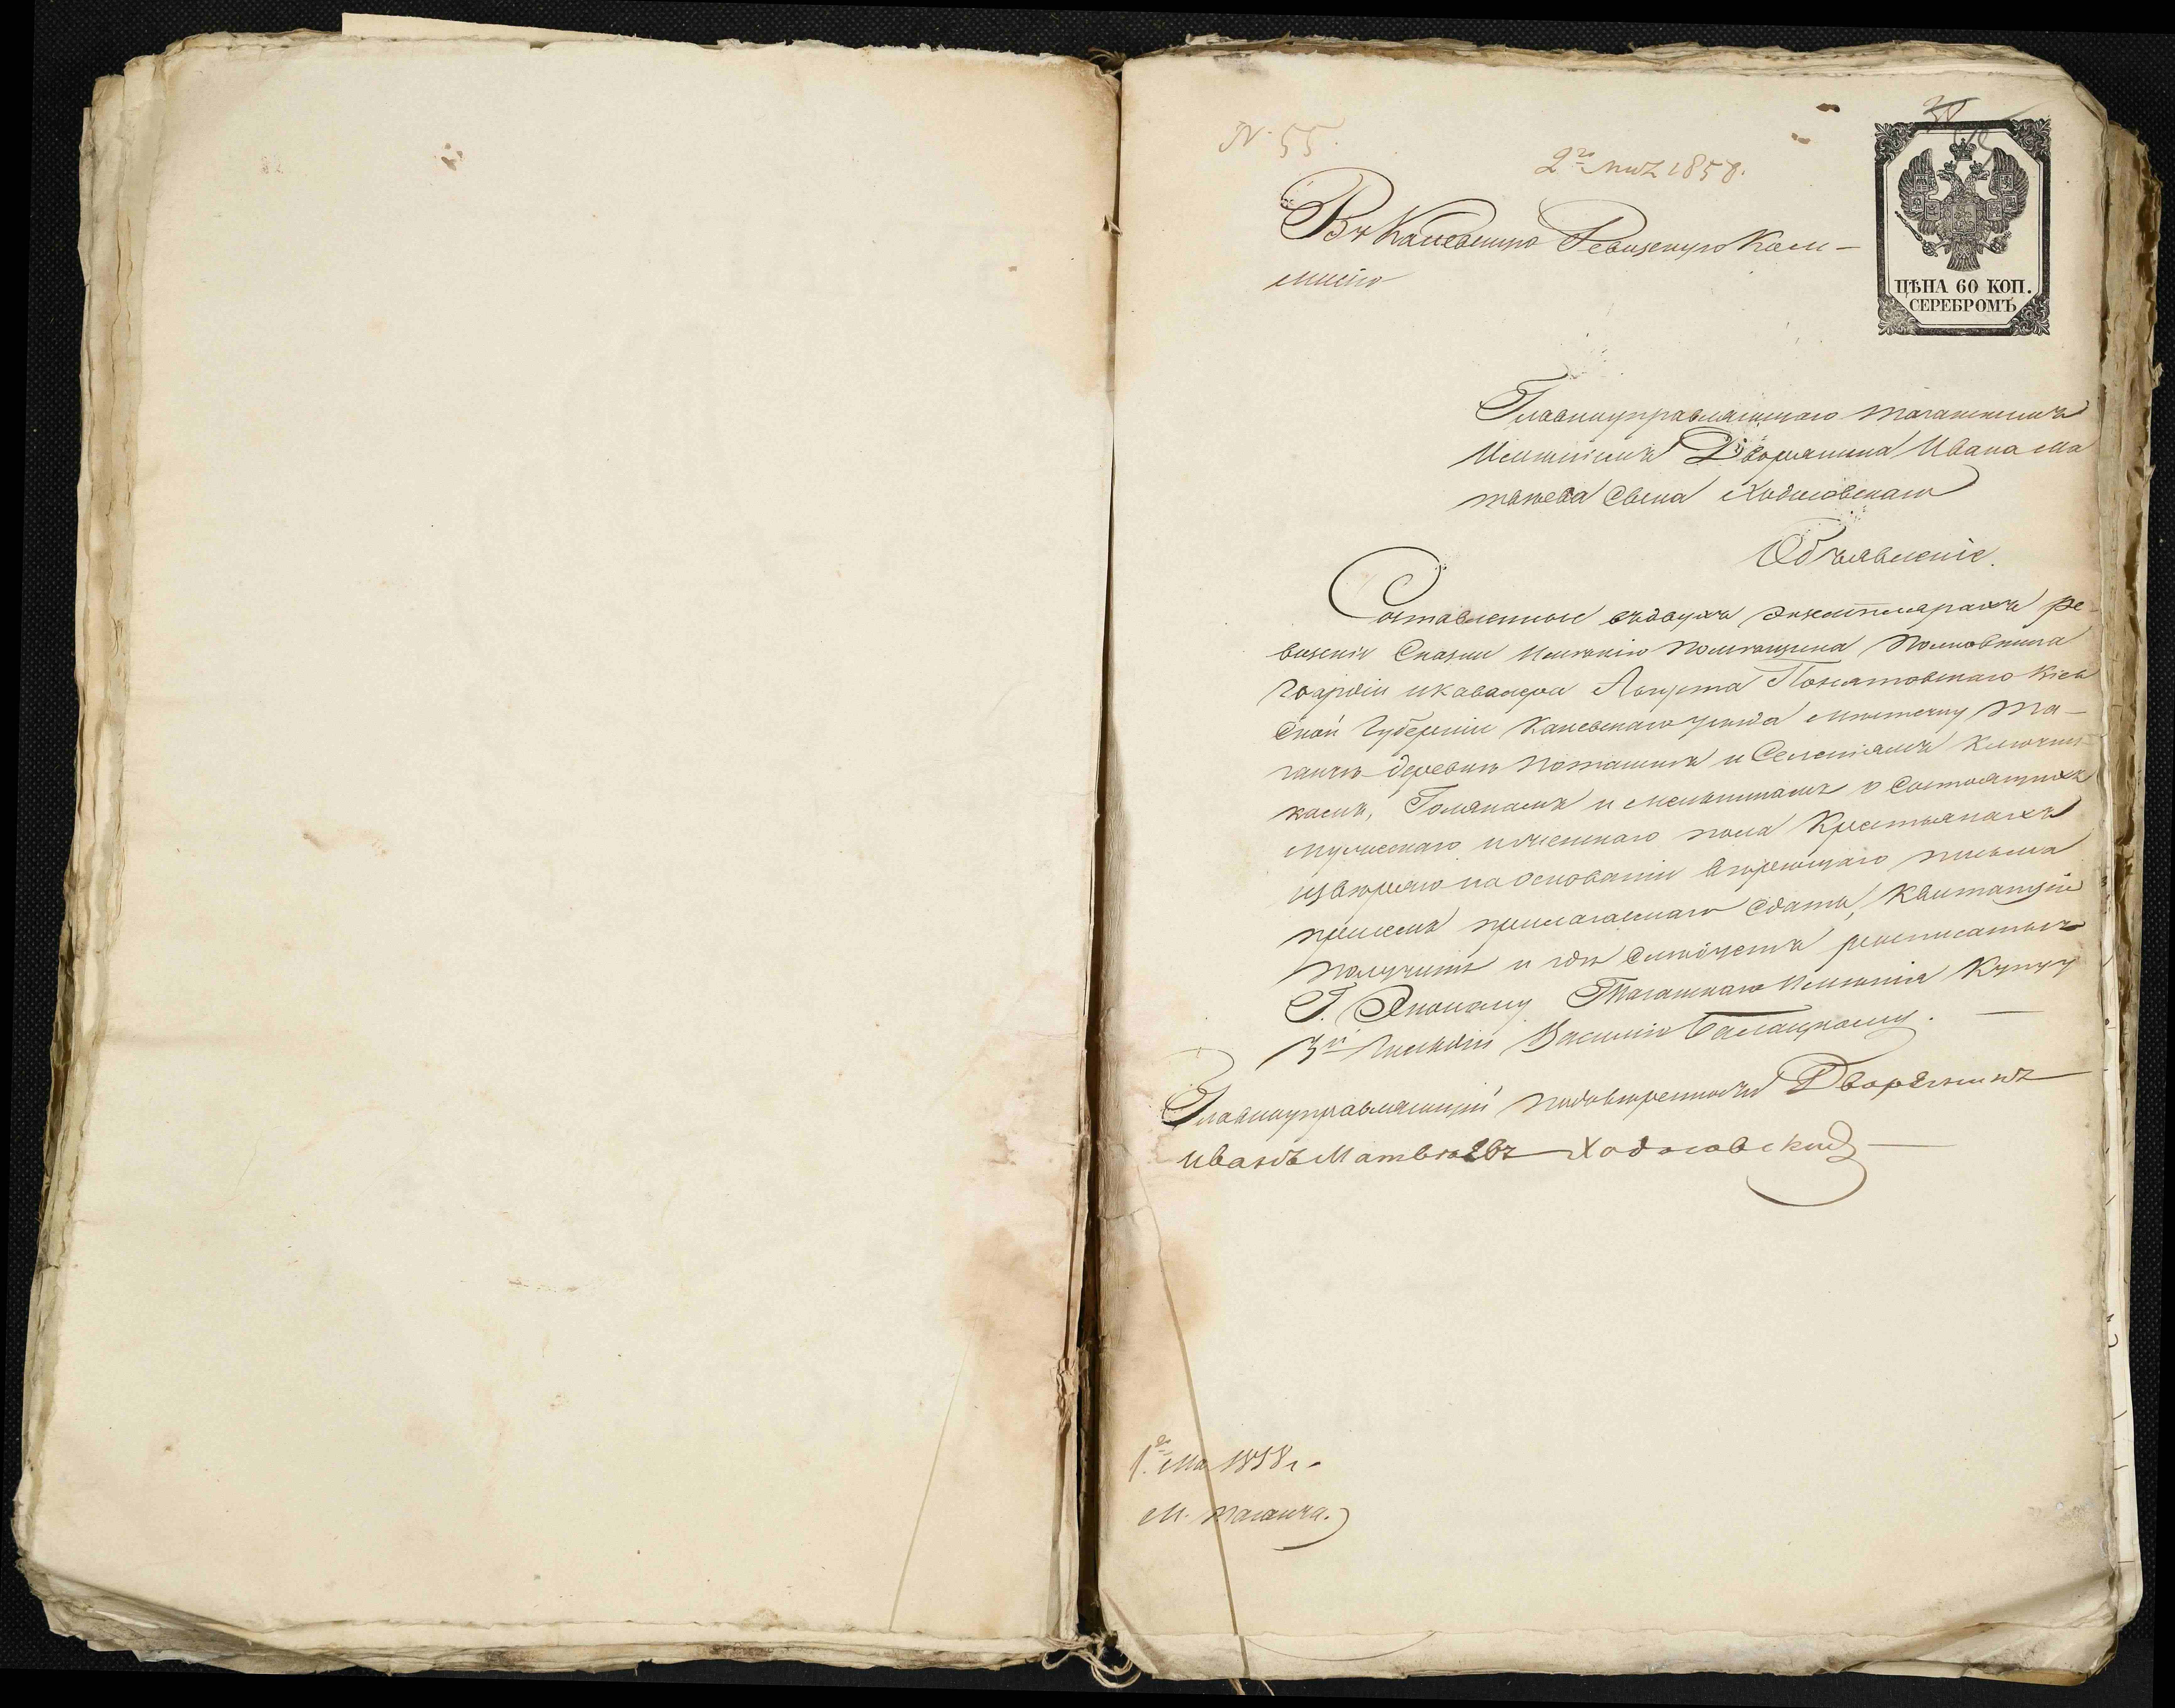 N. 55.
2го мая 1858.
ЦѢНА 60 КОП.
СЕРЕБРОМЪ
Въ Каневскую Ревизскую Ком-
мисію
Главноуправляющаго Таганскимъ
Имѣніемъ Дворянина Ивана Ма
твѣева Сына Ходосовскаго
Объявленіе.
Составленные въ двухъ экземплярахъ ре
визскіе Сказки имѣнію помѣщика Полковника
Гвардіи и кавалера Августа Понятовскаго Кіев
ской Губерніи Каневскаго уѣзда мѣстечку Та-
ганчѣ деревнѣ Поташнѣ и Селеніямъ
камъ, Голякамъ и о состоящихъ
мужескаго и женскаго пола Крестьянахъ
ввѣряю на основаніи вѣрющаго письма
при семъ прилагаемаго сдать, Квитанціи
получить и гдѣ слѣдуетъ росписаться
Г. Эконому Таганскаго Имѣнія Купцу
3й Гильдіи Василію
Главноуправляющій по довѣренности Дворянинъ
Иванъ Матвѣевъ Ходосовскій
1го Мая 1858 г.
М. Таганча.